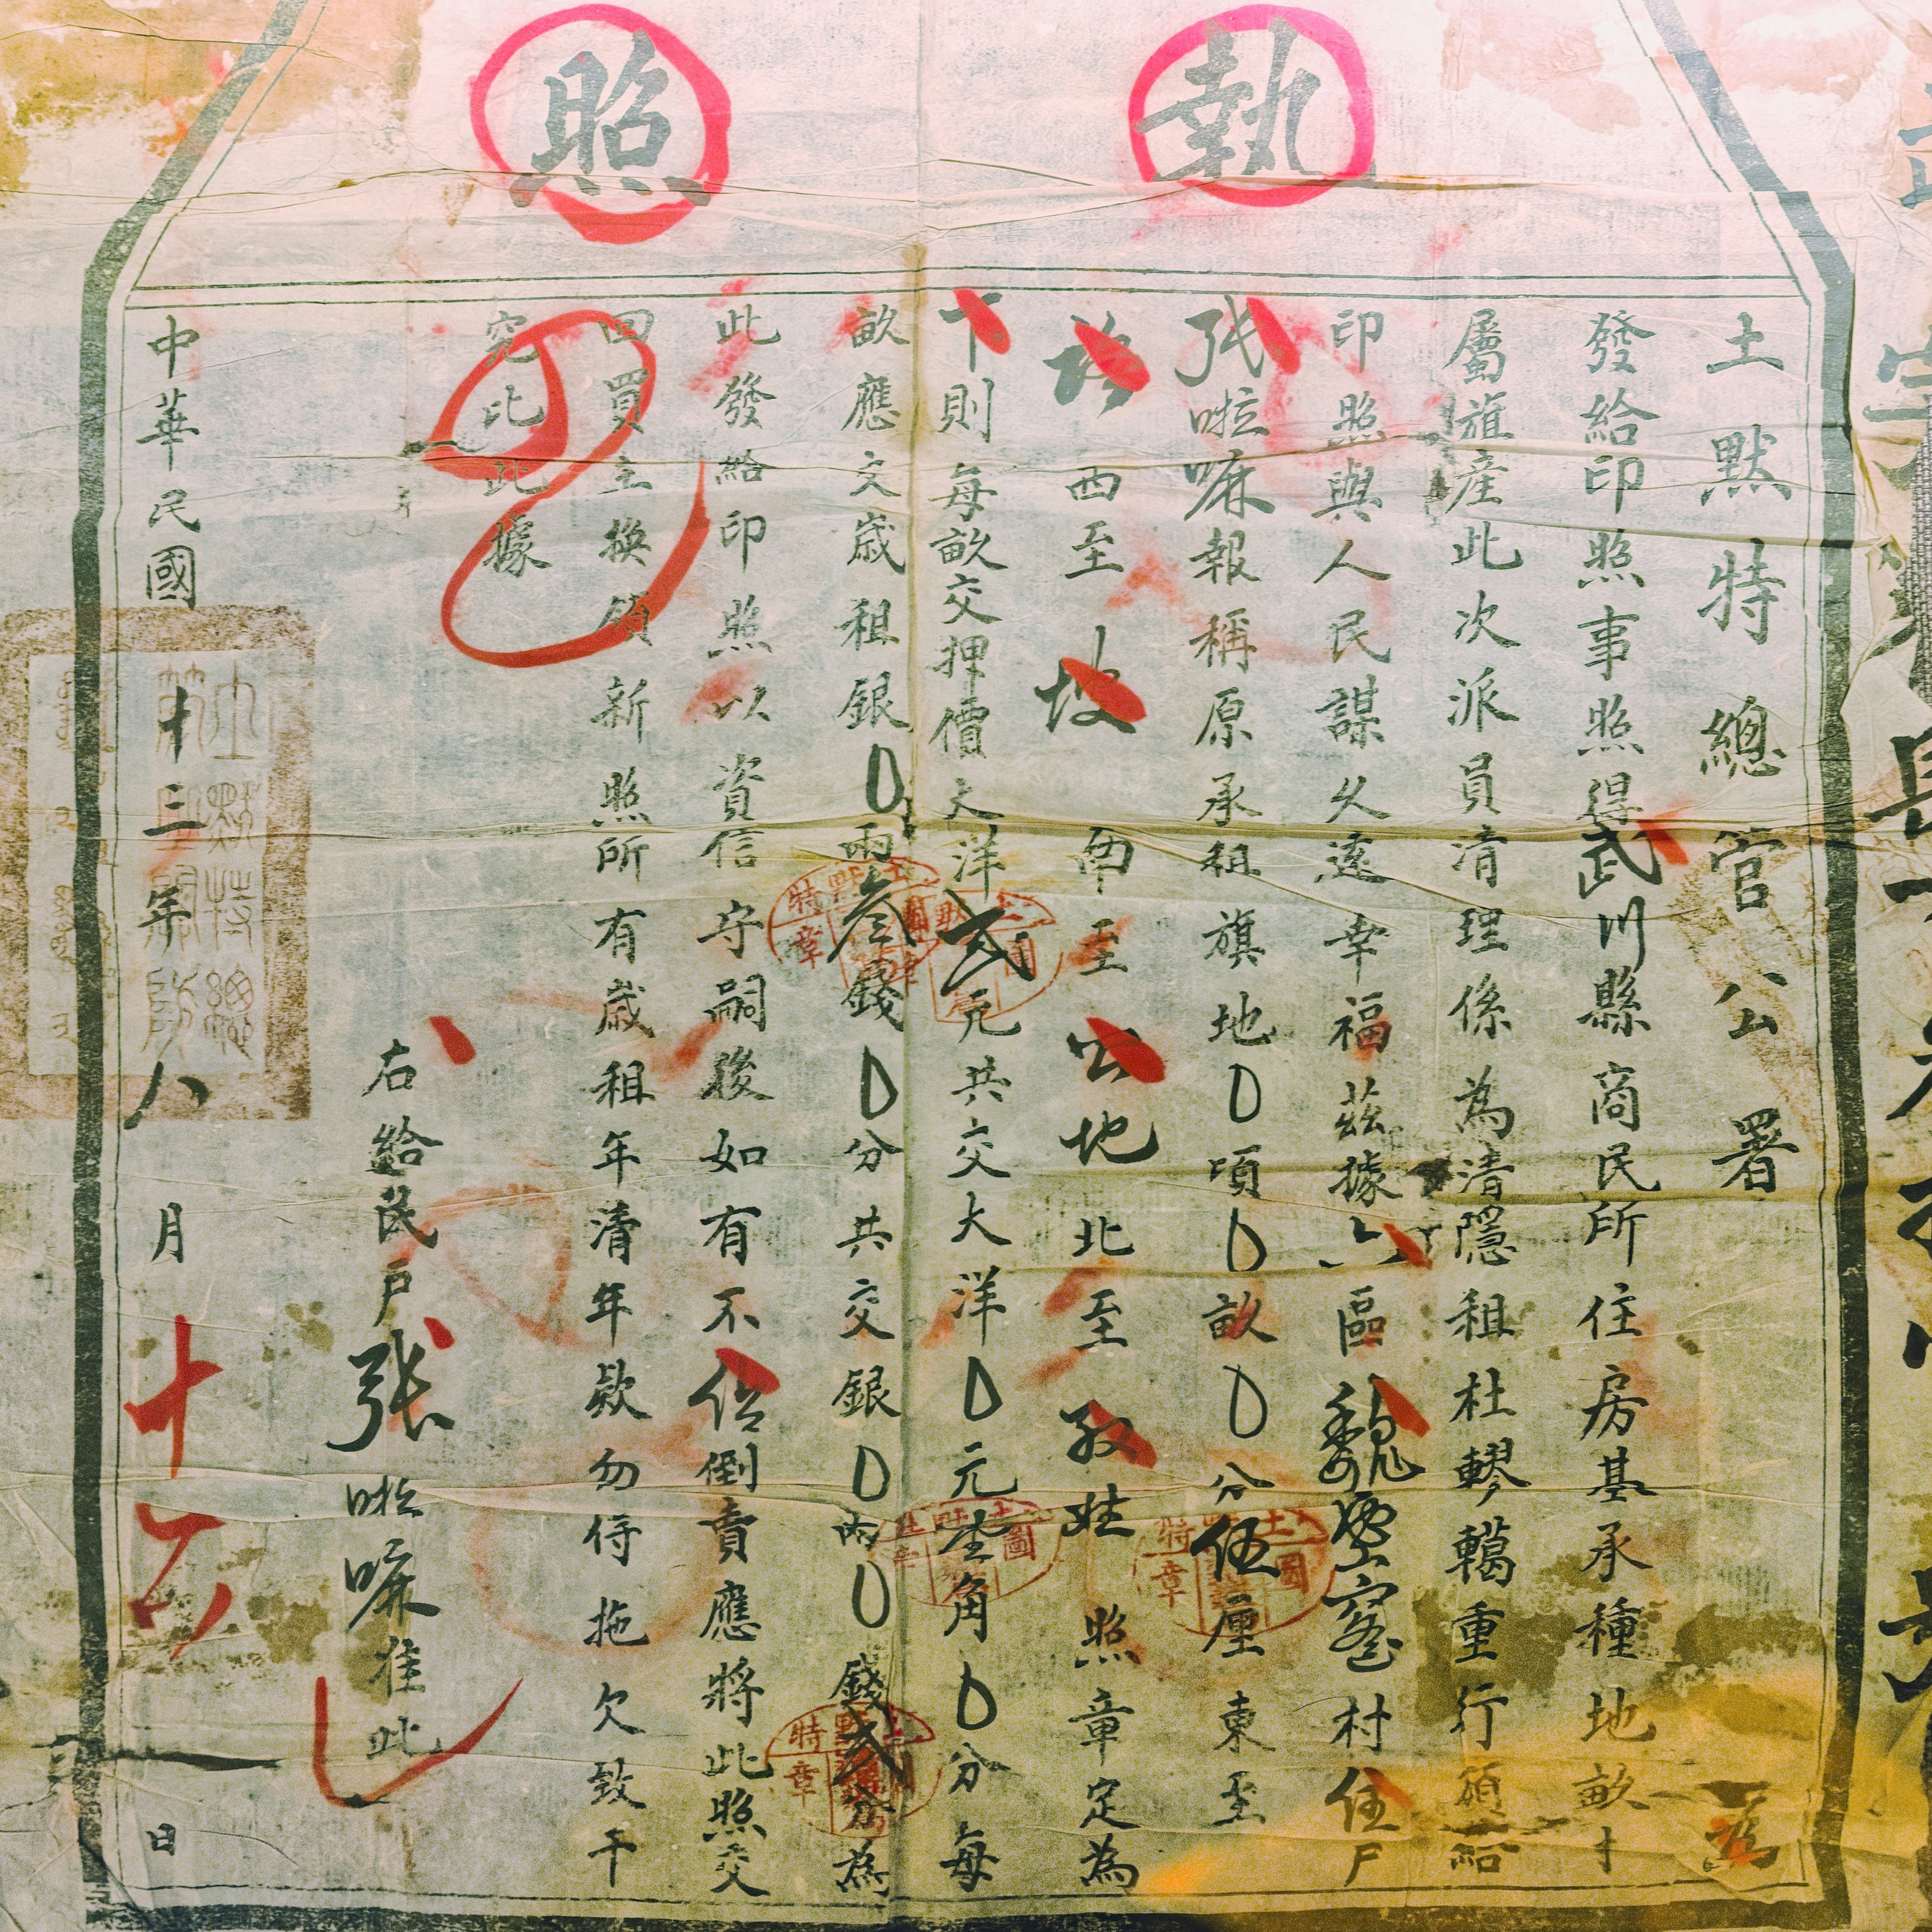 執照
土默特總管公署 為
發給印照事照得武川縣商民所住房基承種地畝
屬旗產此次派員清理係為清隱租杜轇轕重行頒給
印照與人民謀久遠幸福茲據六區魏 窰村住戶
張啦嘛報稱原承租旗地0頃0畝0分伍厘東至
路西至坡南至公地北至 娃照章定為
下則每畝交押價大洋弍元共交大洋0元壹角0分每
畝應交歲租銀0兩叁錢0分共交銀0兩0錢弍分為
此發給印照以資信守嗣後如有不 倒賣應將此照交
回買主換領新照所有歲租年清年款勿得拖欠致干
究比此據
右給民戶張啦嘛准此
中華民國十三年八月十六日